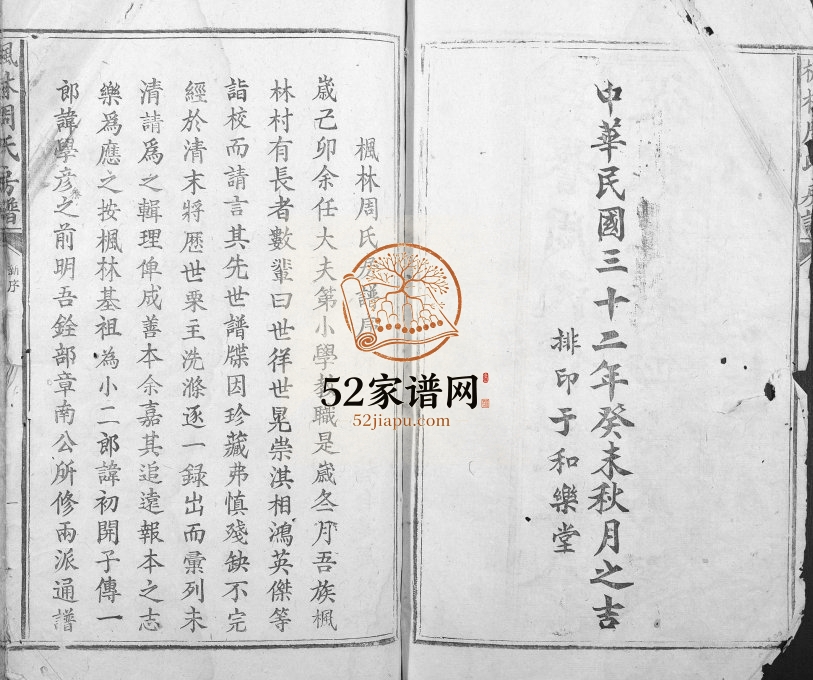 中華民國三十二年癸未秋月之吉
排印于和樂堂
楓林周氏房譜序
歲己卯余任大夫第小學教職是歲冬月吾族楓
林村有長者數輩曰世徉世晃崇淇相鴻英傑等
詣校而請言其先世譜牒因珍藏弗慎殘缺不完
經於清末將歷世栗主洗滌逐一録出而彙列未
清請爲之輯理俾成善本余嘉其追遠報本之志
樂爲應之按楓林基祖為小二郎諱初開子傳一
郎諱學彦之前明吾銓部章南公所修兩派通譜
楓林周氏房譜
新序
一
52家谱网
52jiapu.com